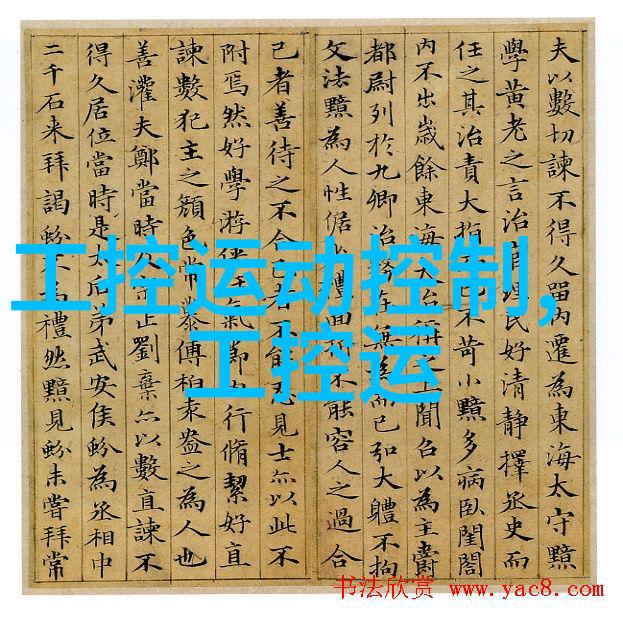 夫以數切諫不得久留內遷為東海太守黯
學黃老之言治官理民好清静擇丞史而
任之其治責大指而已不苛小黯多病臥閨閤
內不出嵗餘東海大治稱之上聞召以為主爵
都尉列於九卿治務在無為而已弘大體不拘
文法黯為人性倨少禮面折不能容人之過合
己者善待之不合己者不能忍見士亦以此不
附焉然好學游俠任氣節內行脩絜好直
諫數犯主之顏色常慕傅柏袁盎之為人也
善灌夫鄭當時及宗正劉棄亦以數直諫不
得久居位當時是太后弟武安侯蚡為丞相中
二千石来拜謁蚡不為禮然黯見蚡未嘗拜常
工控运动控制,
工控运
书法欣赏 www.yac8.com